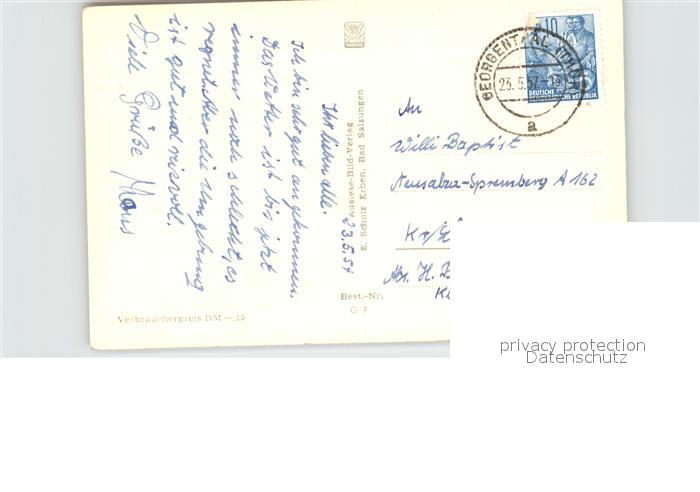 23.5.57
Ihr lieben alle.
Ich bin sehr gut angekommen.
Das Wetter ist bis jetzt
immer noch schlecht, es
regnet. Aber die Umgebung
ist gut und reizvoll.
Viele Grüße Hans
Auslese-Bild-Verlag
E. Schulz Erben, Bad Salzungen
Best.-Nr.
G
Verbraucherpreis DM —,15
GEORGENTHAL
23.5.57
a
10
DEUTSCHE
DEMOKRATISCHE REPUBLIK
An
Willi Baptist
Neusalza-Spremberg A 162
Kr/
Abs. H.
privacy protection
Datenschutz